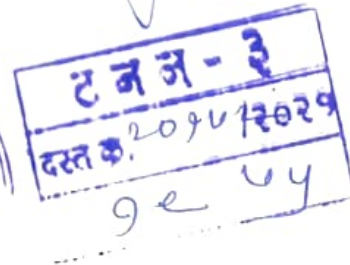 ट न न - ३
दस्त क्र. २०१५/२०२१
१९ ५५